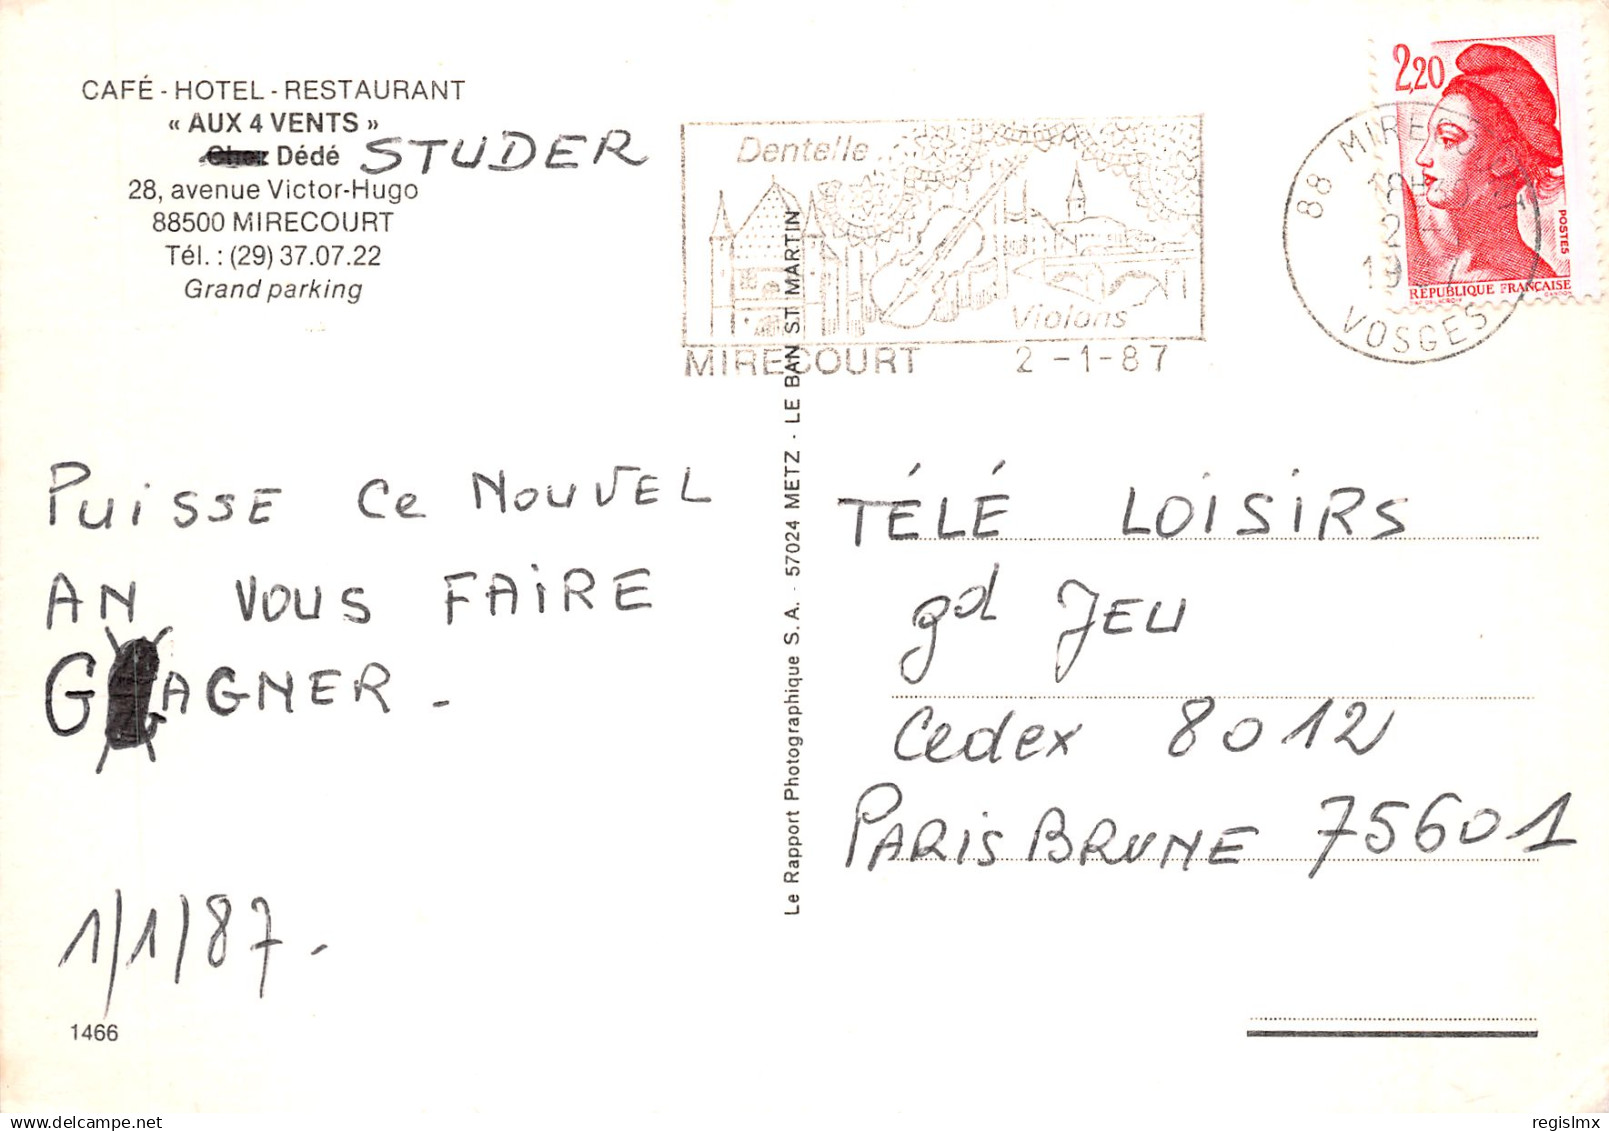 CAFÉ - HOTEL - RESTAURANT
« AUX 4 VENTS »
Chez Dédé STUDER
28, avenue Victor-Hugo
88500 MIRECOURT
Tél. : (29) 37.07.22
Grand parking
Dentelle
Violons
MIRECOURT 2 -1-87
88 MIRECOURT
VOSGES
2,20
POSTES
RÉPUBLIQUE FRANÇAISE
PUISSE Ce NOUVEL
AN VOUS FAIRE
GAGNER.
1/1/87.
1466
Le Rapport Photographique S.A. - 57024 METZ - LE BAN ST MARTIN
TÉLÉ LOISIRS
gd JEU
Cedex 8012
PARIS BRUNE 75601
regislmx